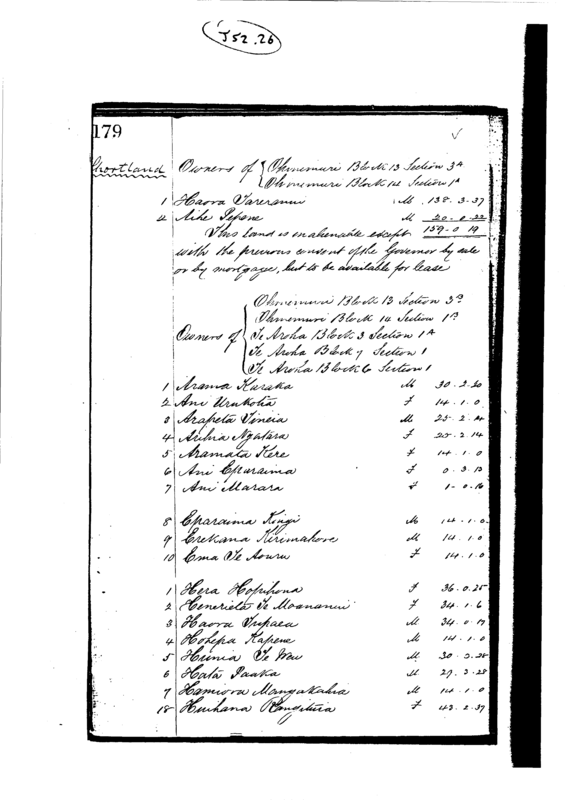 J52.26
179
Shortland Owners of Ohinemuri Block 13 Section 3A
Ohinemuri Block 14 Section 1A
1 Haora Tareranui M. 138. 3. 37
2 M 20. 0. 22
This land is inalienable except 159 - 0 19
with the previous consent of the Governor by sale
or by mortgage, but to be available for lease
Ohinemuri Block 13 Section 3B
Ohinemuri Block 14 Section 1B
Owners of Te Aroha Block 3 Section 1A
Te Aroha Block 7 Section 1
Te Aroha Block 6 Section 1
1 Arama Karaka M 30. 2. 20
2 Ani Urukotia F 14. 1. 0
3 Arapeta Tineia M 25. 2. 14
4 Ngatara F 25. 2. 14
5 Aramata Kere F 14. 1. 0
6 Ani Eparaima F 0. 3.
7 Ani Marara F 1 - 0. 16
8 Eparaima Kingi M 14. 1. 0
9 Erekana Kirimahore M 14. 1. 0
10 Ema Te Aouru F 14. 1. 0
1 Hera Hopihona F 36. 0. 25
2 Henerieta Te Moananui F 34. 1. 6
3 Haora Tupaea M 34. 0.
4 Hohepa Kapene M 14. 1. 0
5 Hunia Te M. 30. 2. 28
6 Hata Paaka M 29. 3. 28
7 Hamiora Mangakahia M 14. 1. 0
18 Huihana Rangituia F 43. 2. 37